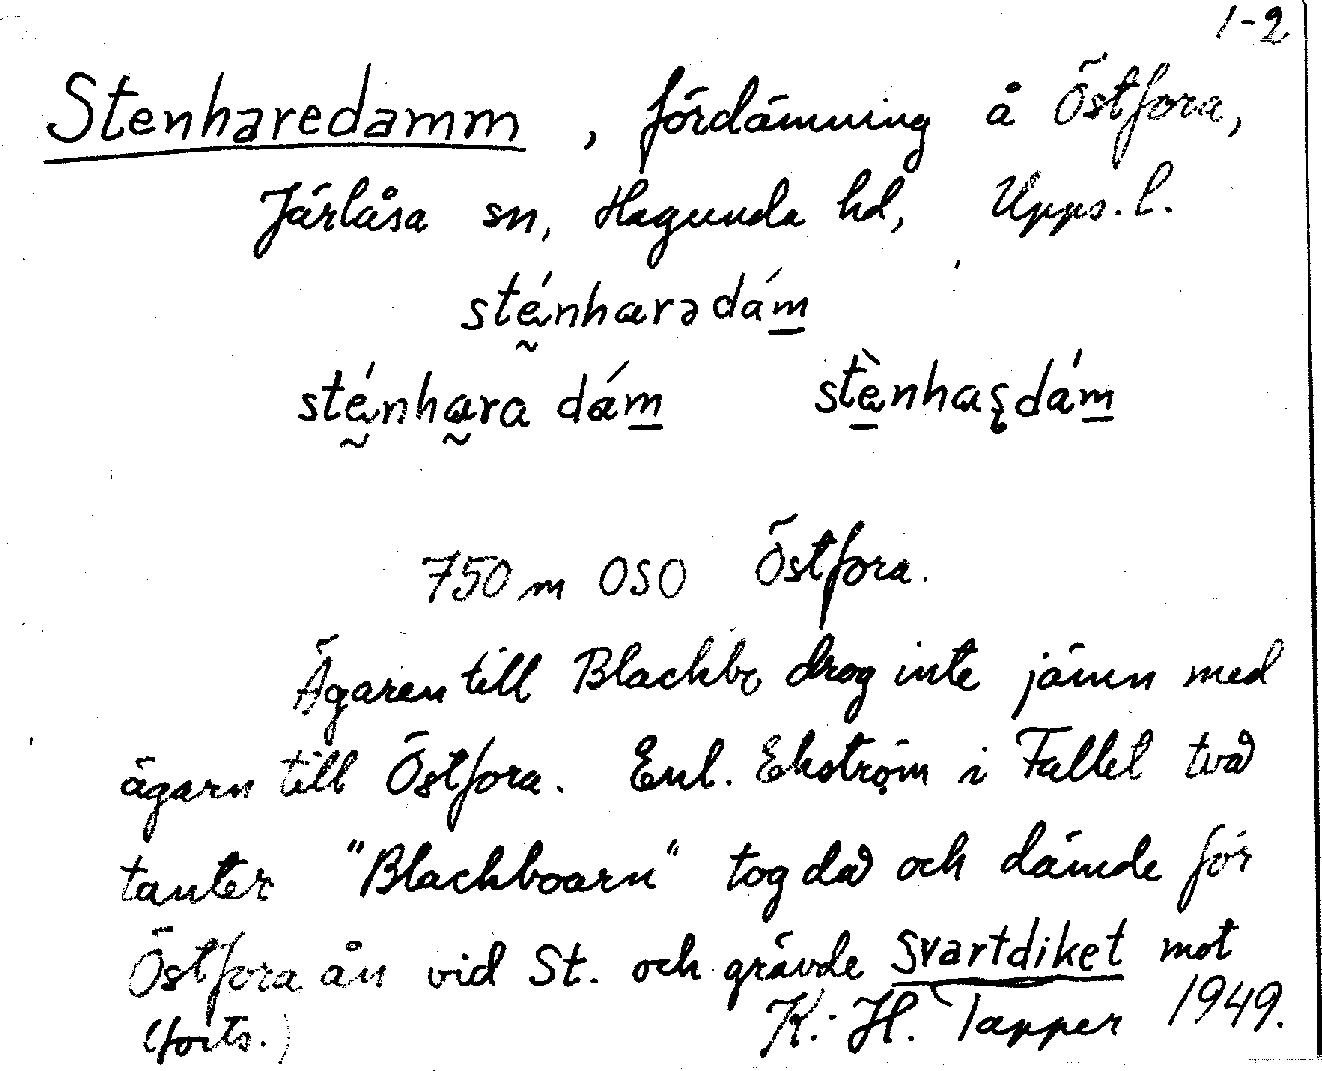 1-2
Stenharedamm, fördämning å Östfora,
Järlåsa sn, Hagunda hd, Upps. l.
sténharədám̲
stḛ́nha̰ra dám̲ stè̲nhaʂdám̲
750 m OSO Östfora.
Ägaren till Blackbo drog inte jämn med
ägarn till Östfora. Enl. Ekström i Fallet två
tanter "Blackboarn" tog då och dämde för
Östfora ån vid St. och grävde Svartdiket mot
(forts.) K.-H. Tapper 1949.